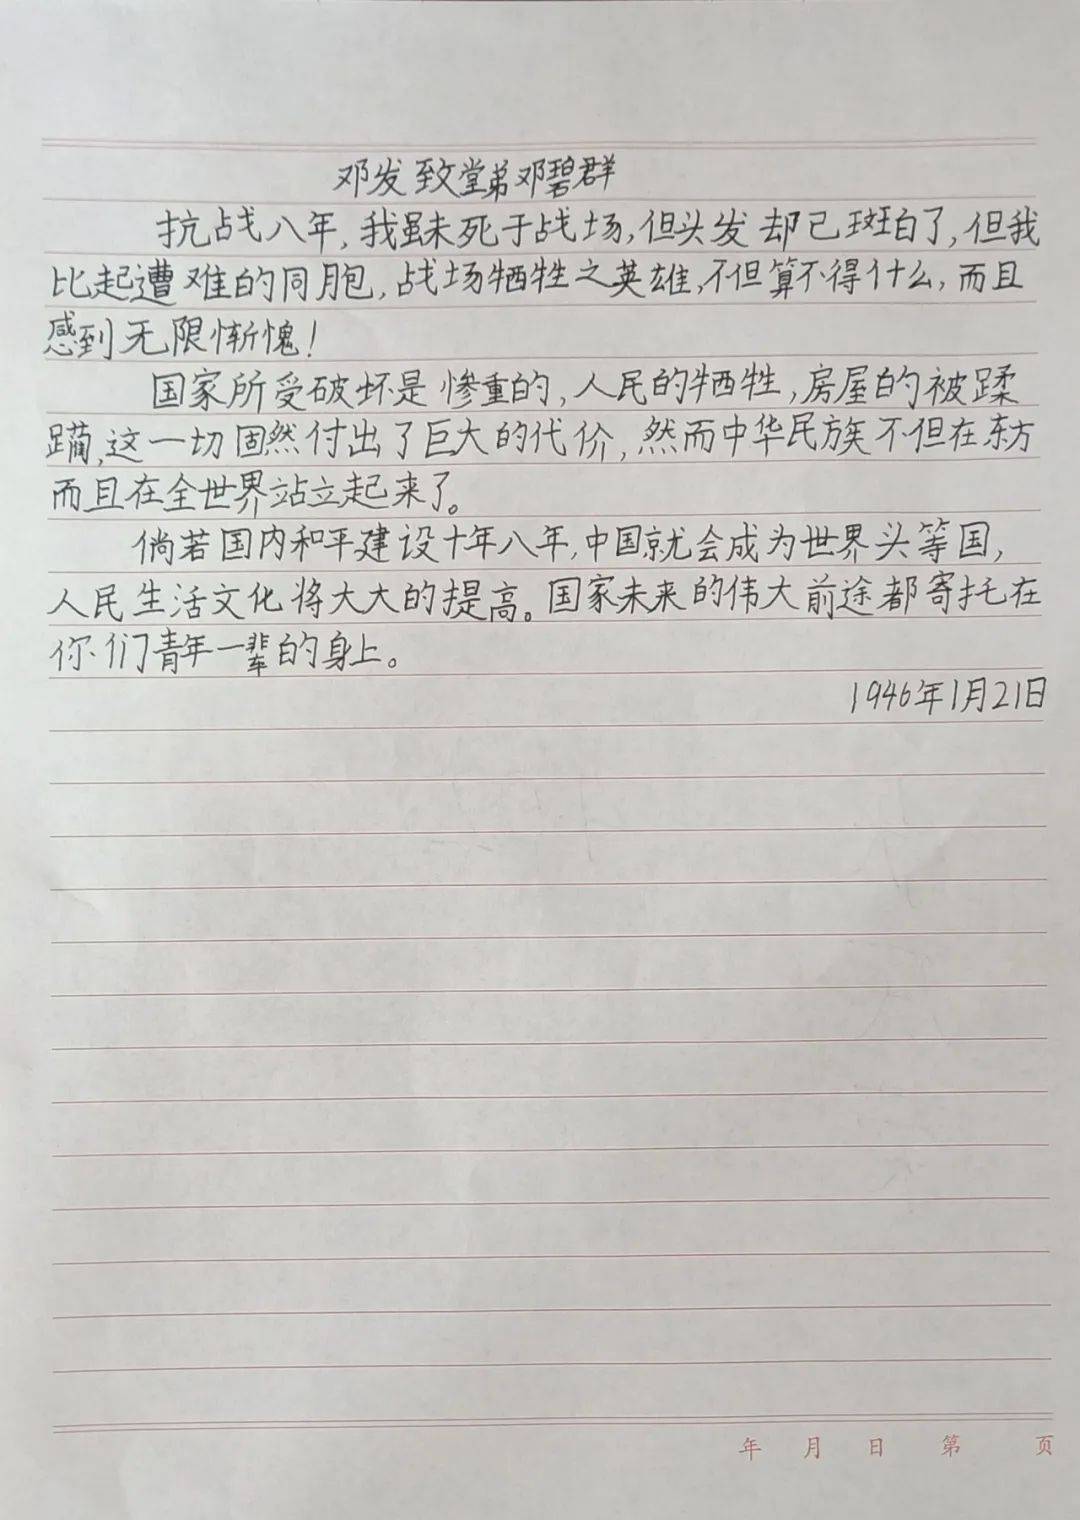 邓发致堂弟邓碧群
抗战八年,我虽未死于战场,但头发却已斑白了,但我
比起遭难的同胞,战场牺牲之英雄,不但算不得什么,而且
感到无限惭愧!
国家所受破坏是惨重的,人民的牺牲,房屋的被蹂
躏,这一切固然付出了巨大的代价,然而中华民族不但在东方
而且在全世界站立起来了。
倘若国内和平建设十年八年,中国就会成为世界头等国,
人民生活文化将大大的提高。国家未来的伟大前途都寄托在
你们青年一辈的身上。
1946年1月21日
年 月 日 第 页